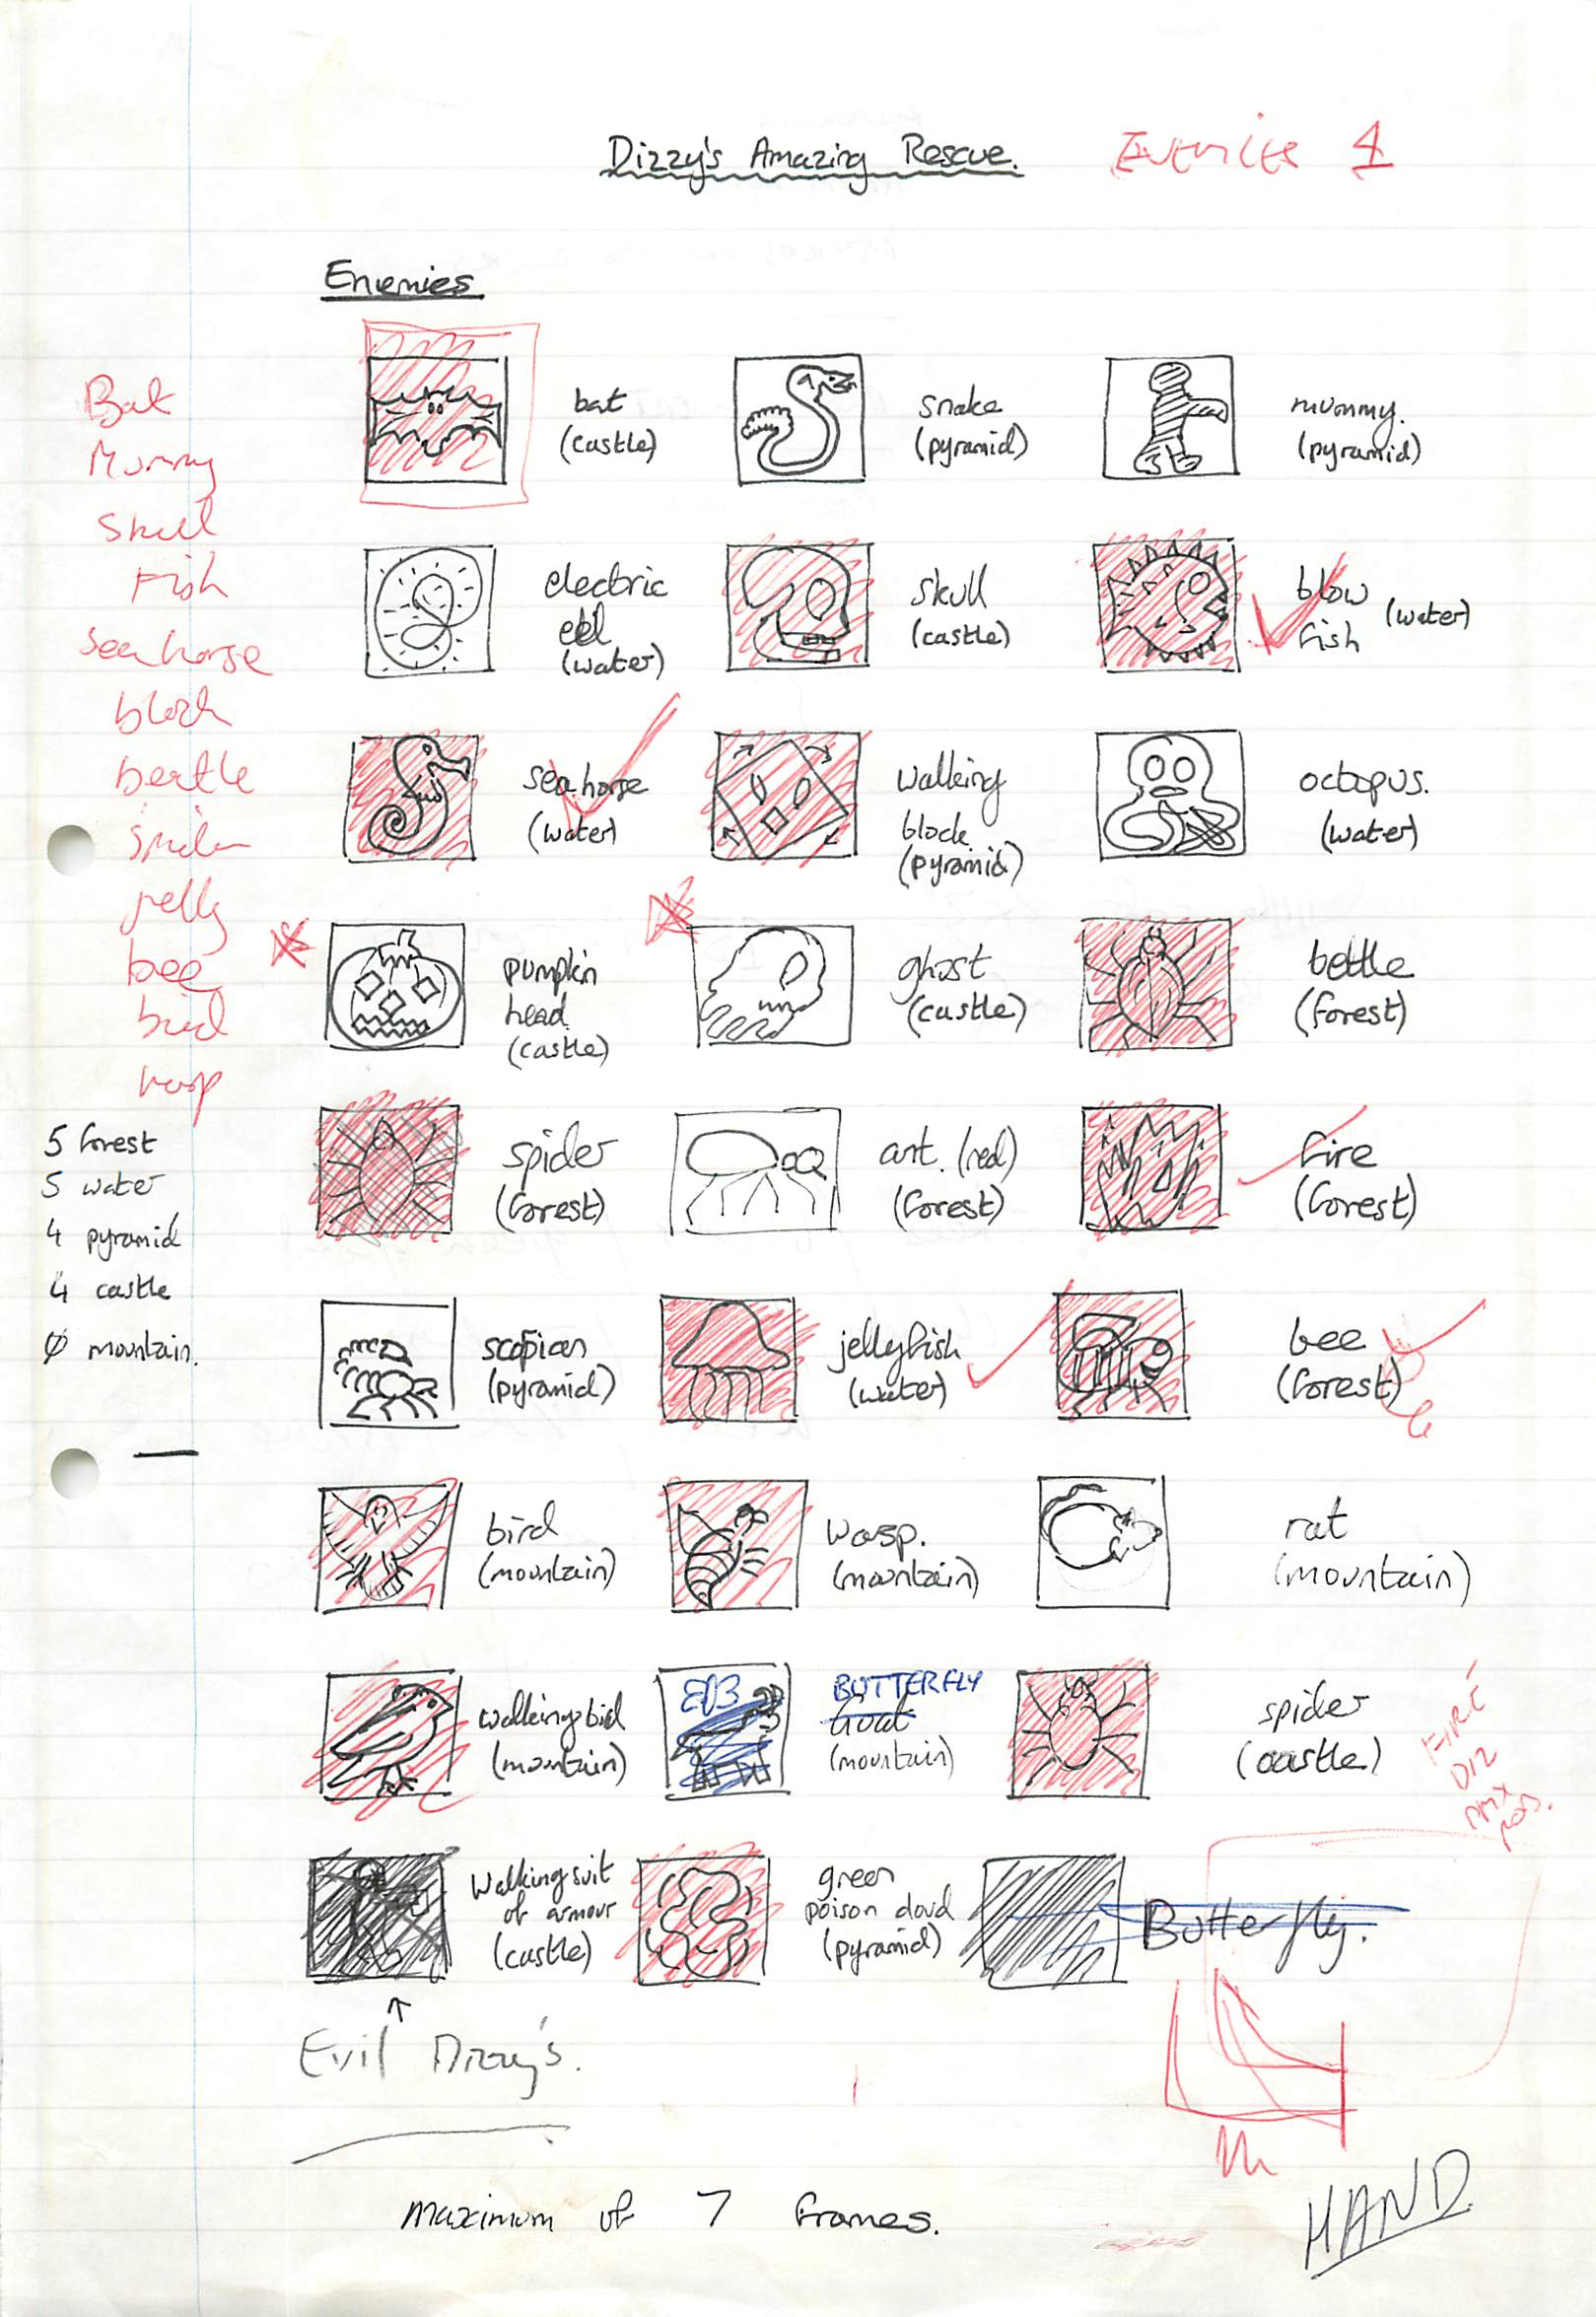 Dizzy's Amazing Rescue.
Enemies 1
Enemies
Bat
Mummy
Skull
Fish
Sea horse
block
beetle
spider
jelly
bee
bird
wasp
5 forest
5 water
4 pyramid
4 castle
0 mountain.
bat
(castle)
snake
(pyramid)
mummy.
(pyramid)
electric
eel
(water)
skull
(castle)
blow
fish
(water)
sea horse
(water)
walking
block
(pyramid)
octopus.
(water)
pumpkin
head
(castle)
ghost
(castle)
bettle
(forest)
spider
(forest)
ant. (red)
(forest)
fire
(forest)
scopion
(pyramid)
jellyfish
(water)
bee
(forest)
bird
(mountain)
wasp.
(mountain)
rat
(mountain)
walking bird
(mountain)
BUTTERFLY
Goat
(mountain)
spider
(castle)
FIRE
Walking suit
of armour
(castle)
green
poison cloud
(pyramid)
Butterfly.
Evil Dizzy's.
maximum of 7 frames.
HAND